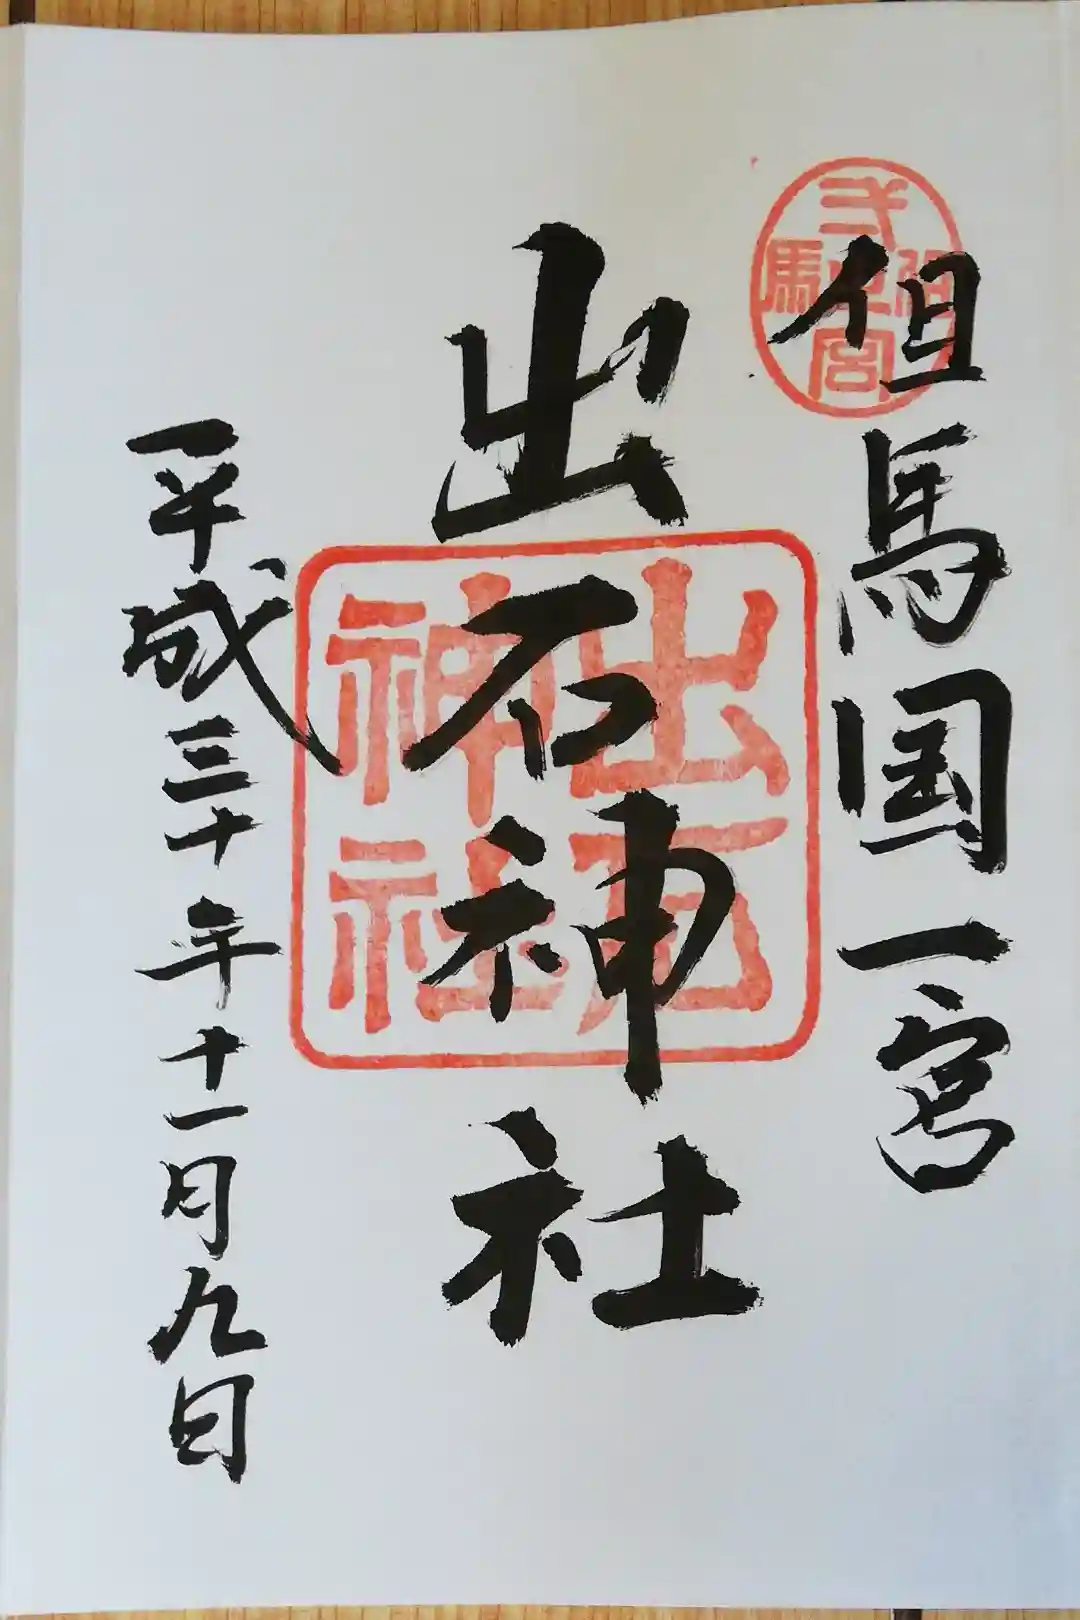 但馬国一宮
出石神社
出石
神社
平成三十年十一月九日